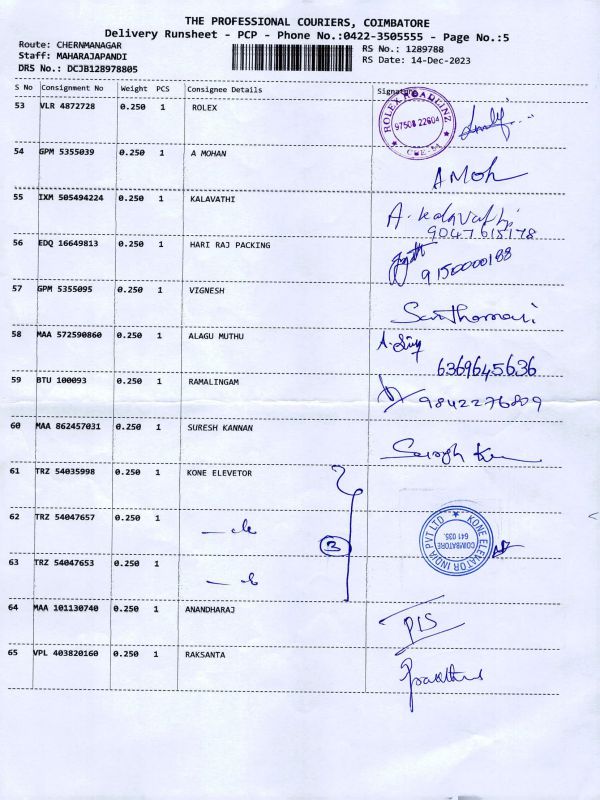 THE PROFESSIONAL COURIERS, COIMBATORE
Delivery Runsheet - PCP - Phone No.:0422-3505555 - Page No.:5
Route: CHERNMANAGAR
RS No.: 1289788
Staff: MAHARAJAPANDI
RS Date: 14-Dec-2023
DRS No.: DCJB128978805
S No Consignment No Weight PCS Consignee Details Signature
53 VLR 4872728 0.250 1 ROLEX
ROLEX ROADLINZ
97508 22604
CBE-14
54 GPM 5355039 0.250 1 A MOHAN A Moh
55 IXM 505494224 0.250 1 KALAVATHI A. Kalavathi
9047615178
56 EDQ 16649813 0.250 1 HARI RAJ PACKING
9150000188
57 GPM 5355095 0.250 1 VIGNESH
58 MAA 572590860 0.250 1 ALAGU MUTHU
6369645636
59 BTU 100093 0.250 1 RAMALINGAM 9842276809
60 MAA 862457031 0.250 1 SURESH KANNAN
61 TRZ 54035998 0.250 1 KONE ELEVETOR
62 TRZ 54047657 0.250 1
3
KONE ELEVATOR INDIA PVT LTD
COIMBATORE
641 035.
63 TRZ 54047653 0.250 1
64 MAA 101130740 0.250 1 ANANDHARAJ
65 VPL 403820160 0.250 1 RAKSANTA